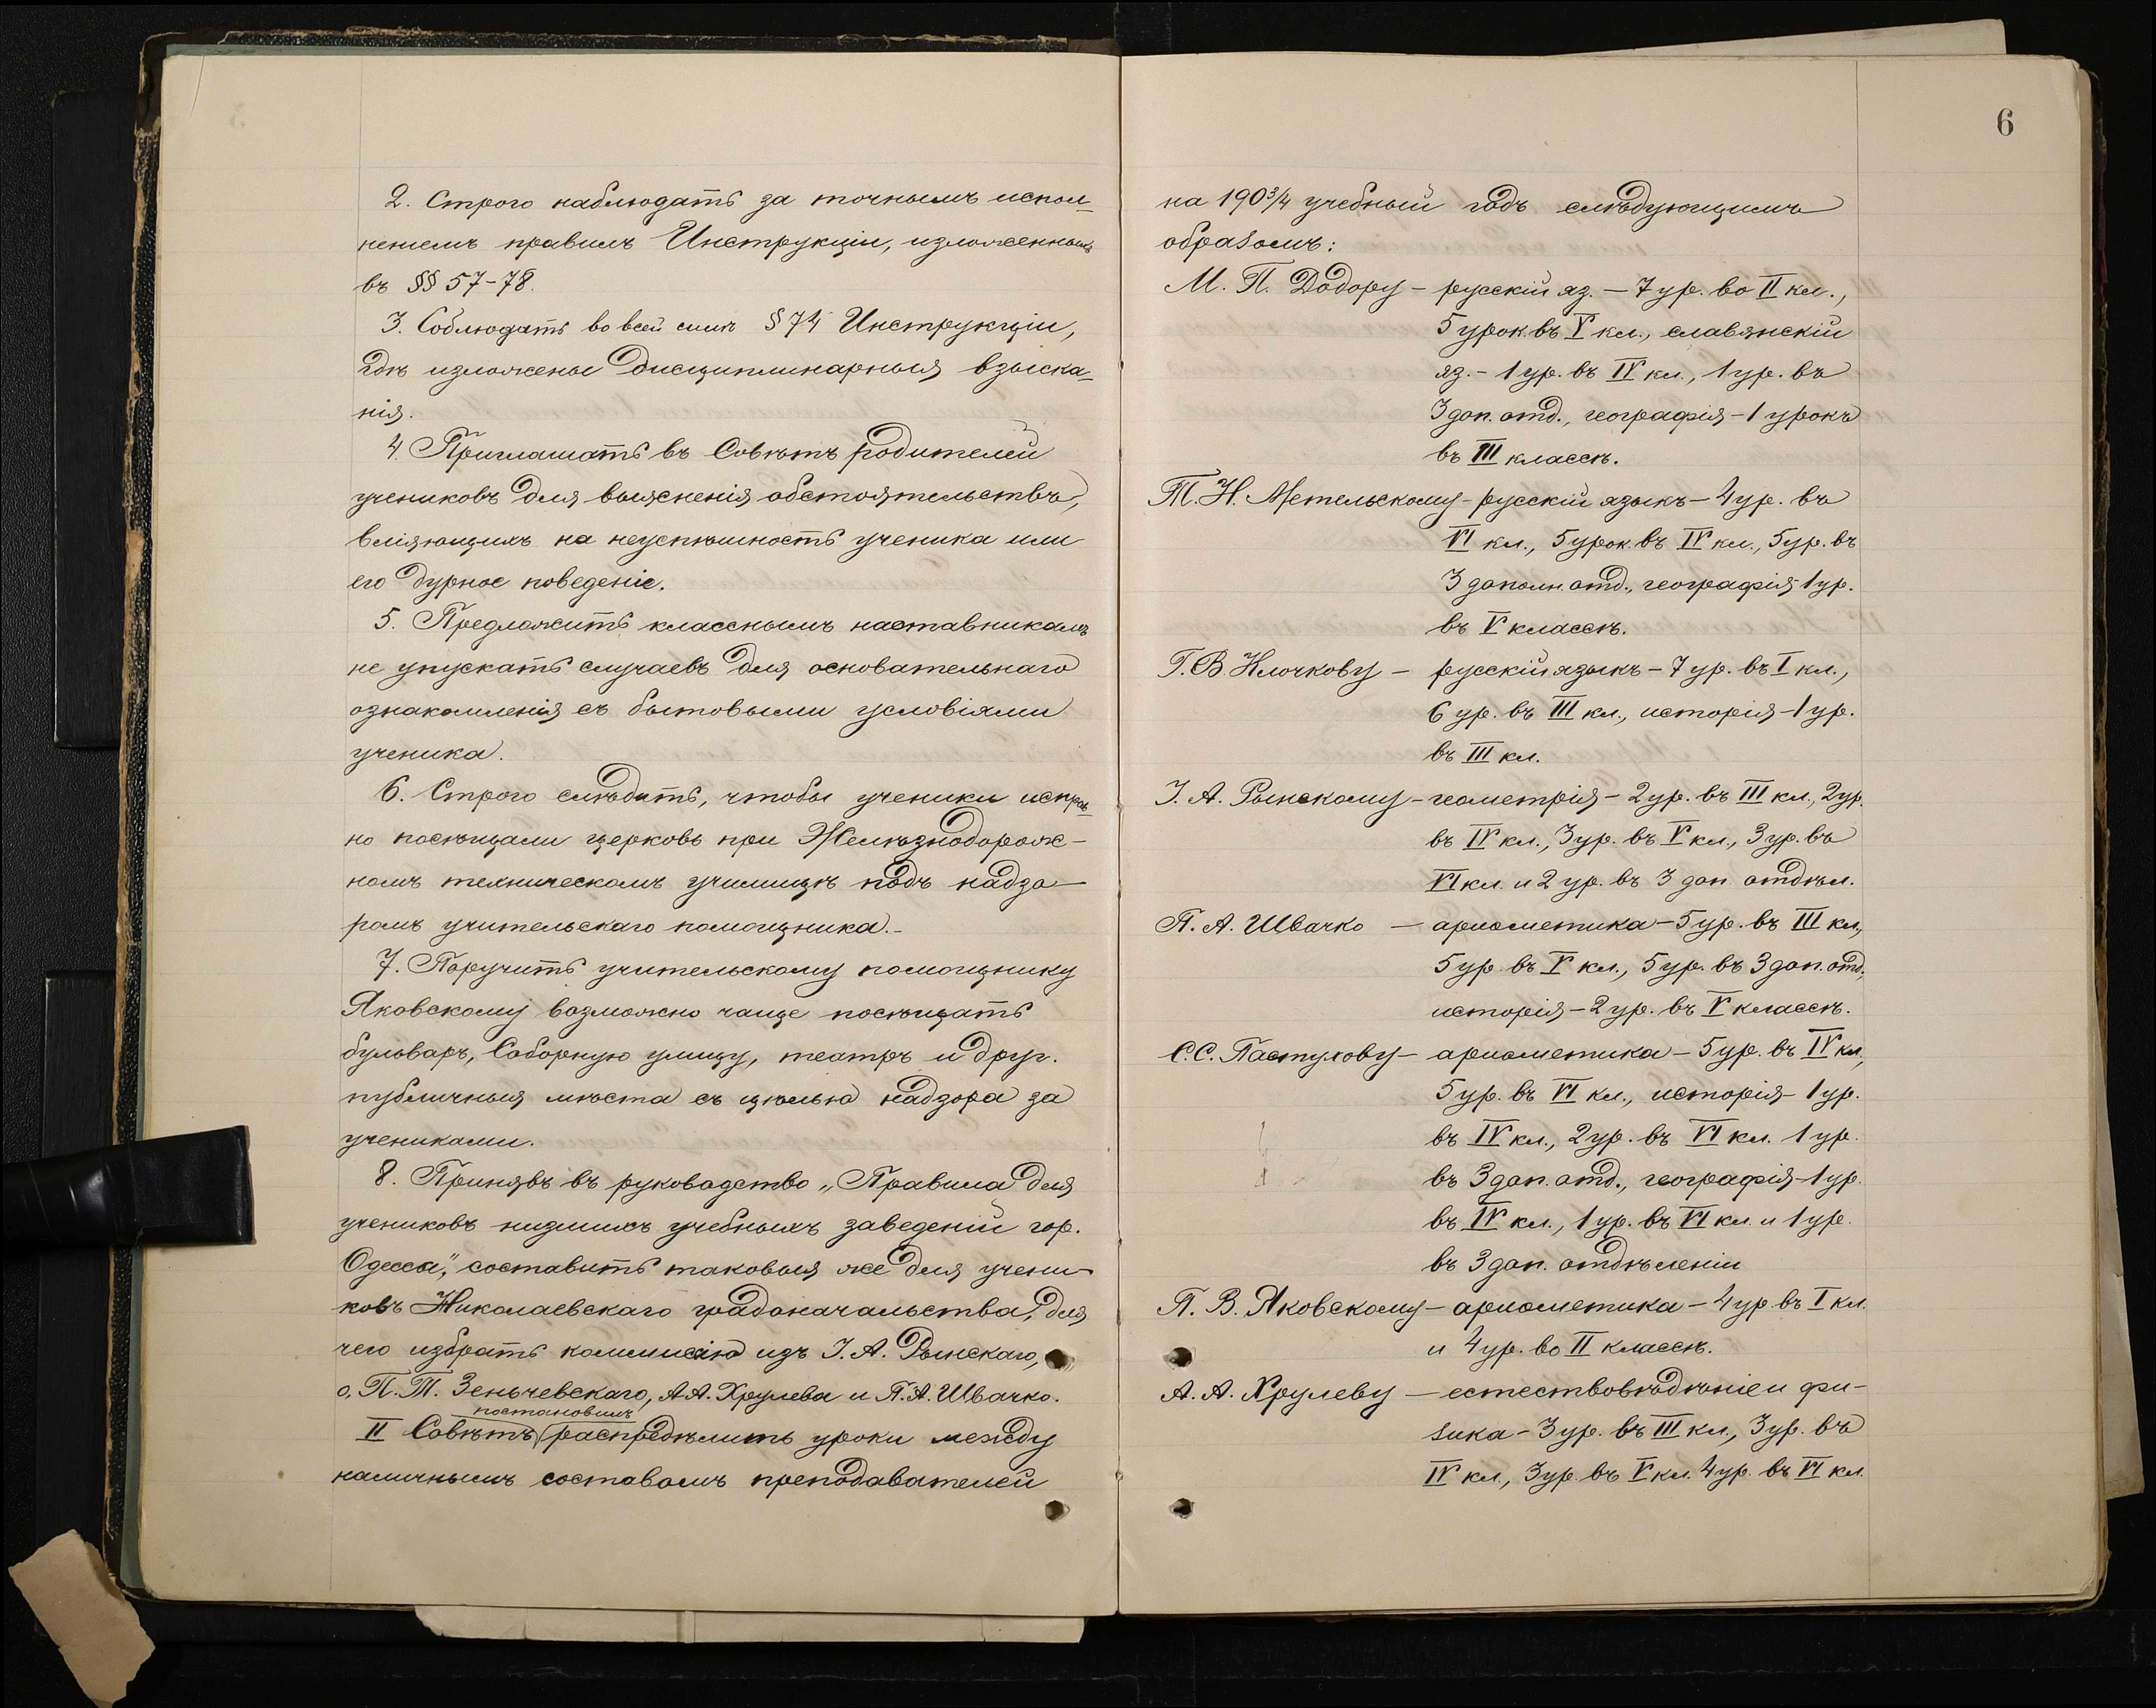 2. Строго наблюдать за точнымъ испол-
неніемъ правилъ Инструкціи, изложенныхъ
въ §§ 57-78.
3. Соблюдать во всей силѣ § 74 Инструкціи,
гдѣ изложены дисциплинарныя взыска-
нія.
4. Приглашать въ Совѣтъ родителей
учениковъ для выясненія обстоятельствъ,
вліяющихъ на неуспѣшность ученика или
его дурное поведеніе.
5. Предложить класснымъ наставникамъ
не упускать случаевъ для основательнаго
ознакомленія съ бытовыми условіями
ученика.
6. Строго слѣдить, чтобы ученики исправ-
но посѣщали церковь при Желѣзнодорож-
номъ техническомъ училищѣ подъ надзо-
ромъ учительскаго помощника.-
7. Поручить учительскому помощнику
Яковскому возможно чаще посѣщать
бульваръ, Соборную улицу, театръ и друг.
публичныя мѣста съ цѣлью надзора за
учениками.
8. Принявъ въ руководство „Правила для
учениковъ низшихъ учебныхъ заведеній гор.
Одессы", составить таковыя же для учени-
ковъ Николаевскаго градоначальства, для
чего избрать коммисію изъ І. А. Рынскаго,
о, П. Т. Зеньчевскаго, А. А. Хрулева и П. А. Швачко.
постановилъ
II Совѣтъ распредѣлить уроки между
наличнымъ составомъ преподавателей
6
на 190¾ учебный годъ слѣдующимъ
образомъ:
М. П. Додору - русскій яз. - 7 ур. во II кл.,
5 урок. въ V кл., славянскій
яз. - 1 ур. въ IV кл., 1 ур. въ
3 доп. отд., географія - 1 урокъ
въ III классѣ.
Т. Н. Метельскому - русскій языкъ - 4 ур. въ
VI кл., 5 урок. въ IV кл., 5 ур. въ
3 дополн. отд., географія 1 ур.
въ V классѣ.
Г. В. Клочкову - русскій языкъ - 7 ур. въ I кл.,
6 ур. въ III кл., исторія - 1 ур.
въ III кл.
І. А. Рынскому - геометрія - 2 ур. въ III кл., 2 ур.
въ IV кл., 3 ур. въ V кл., 3 ур. въ
VI кл. и 2 ур. въ 3 доп. отдѣл.
П. А. Швачко - ариѳметика - 5 ур. въ III кл.,
5 ур. въ V кл., 5 ур. въ 3 доп. отд.,
исторія - 2 ур. въ V классѣ.
С. С. Пастухову - ариѳметика - 5 ур. въ IV кл.,
5 ур. въ VI кл., исторія - 1 ур.
въ IV кл., 2 ур. въ VI кл. 1 ур.
въ 3 доп. отд., географія - 1 ур.
въ IV кл., 1 ур. въ VI кл. и 1 ур.
въ 3 доп. отдѣленіи
П. В. Яковскому - ариѳметика - 4 ур. въ I кл.
и 4 ур. во II классѣ.
А. А. Хрулеву - естествовѣдѣніе и фи-
зика - 3 ур. въ III кл., 3 ур. въ
IV кл., 3 ур. въ V кл. 4 ур. въ VI кл.